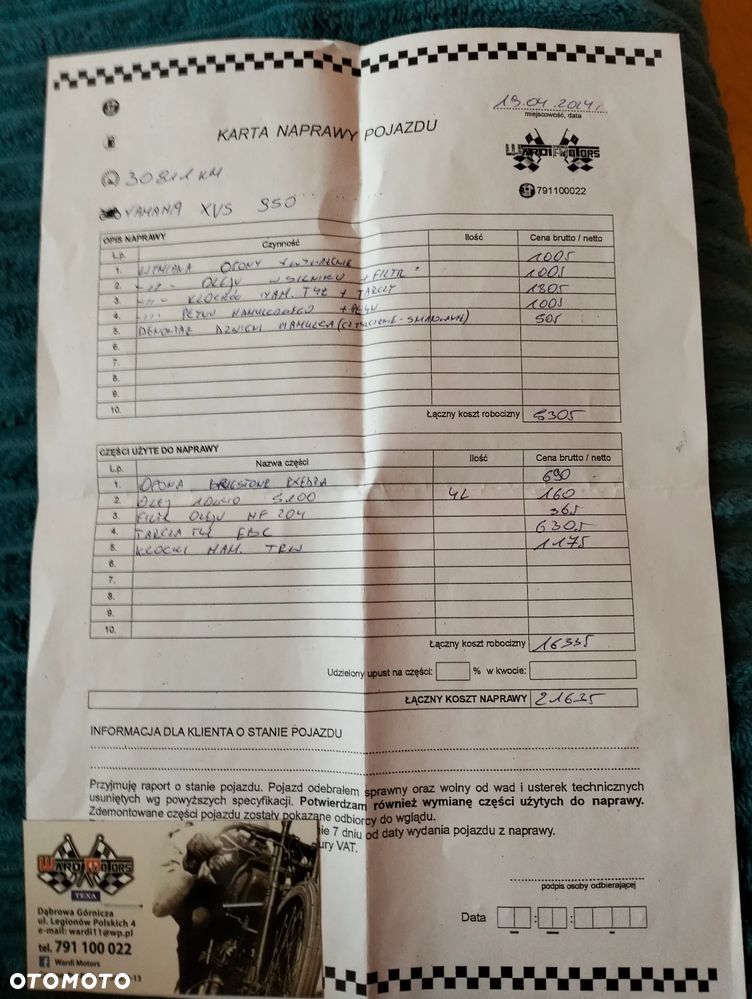 19.04.2024r.
miejscowość, data
KARTA NAPRAWY POJAZDU
WARDI MOTORS
791100022
30811 KM
YAMAHA XVS 950
OPIS NAPRAWY
Lp. Czynność Ilość Cena brutto / netto
1. WYMIANA OPONY + WYWAŻENIE 100,-
2. -"- OLEJU W SILNIKU + FILTR 100,-
3. -"- KLOCKÓW HAM. TYŁ + TARCZY 180,-
4. -"- PŁYNU HAMULCOWEGO + PŁYN 100,-
5. DEMONTAŻ DŹWIGNI HAMULCA (CZYSZCZENIE - SMAROWANIE) 50,-
6.
7.
8.
9.
10. Łączny koszt robocizny 530,-
CZĘŚCI UŻYTE DO NAPRAWY
Lp. Nazwa części Ilość Cena brutto / netto
1. OPONA BRIGSTONE EXEDRA 690
2. OLEJ 10W40 S100 4L 160
3. FILTR OLEJU HF 204 36,-
4. TARCZA TYŁ EBC 630,-
5. KLOCKI HAM. TRW 117,-
6.
7.
8.
9.
10. Łączny koszt robocizny 1633,-
Udzielony upust na części: % w kwocie:
ŁĄCZNY KOSZT NAPRAWY 2163,-
INFORMACJA DLA KLIENTA O STANIE POJAZDU
Przyjmuję raport o stanie pojazdu. Pojazd odebrałem sprawny oraz wolny od wad i usterek technicznych
usuniętych wg powyższych specyfikacji. Potwierdzam również wymianę części użytych do naprawy.
Zdemontowane części pojazdu zostały pokazane odbiorcy do wglądu.
7 dniu od daty wydania pojazdu z naprawy.
VAT.
podpis osoby odbierającej
Data
WARDI MOTORS
TEXA
Dąbrowa Górnicza
ul. Legionów Polskich 4
e-mail: wardi11@wp.pl
tel. 791 100 022
Wardi Motors
-13
OTOMOTO